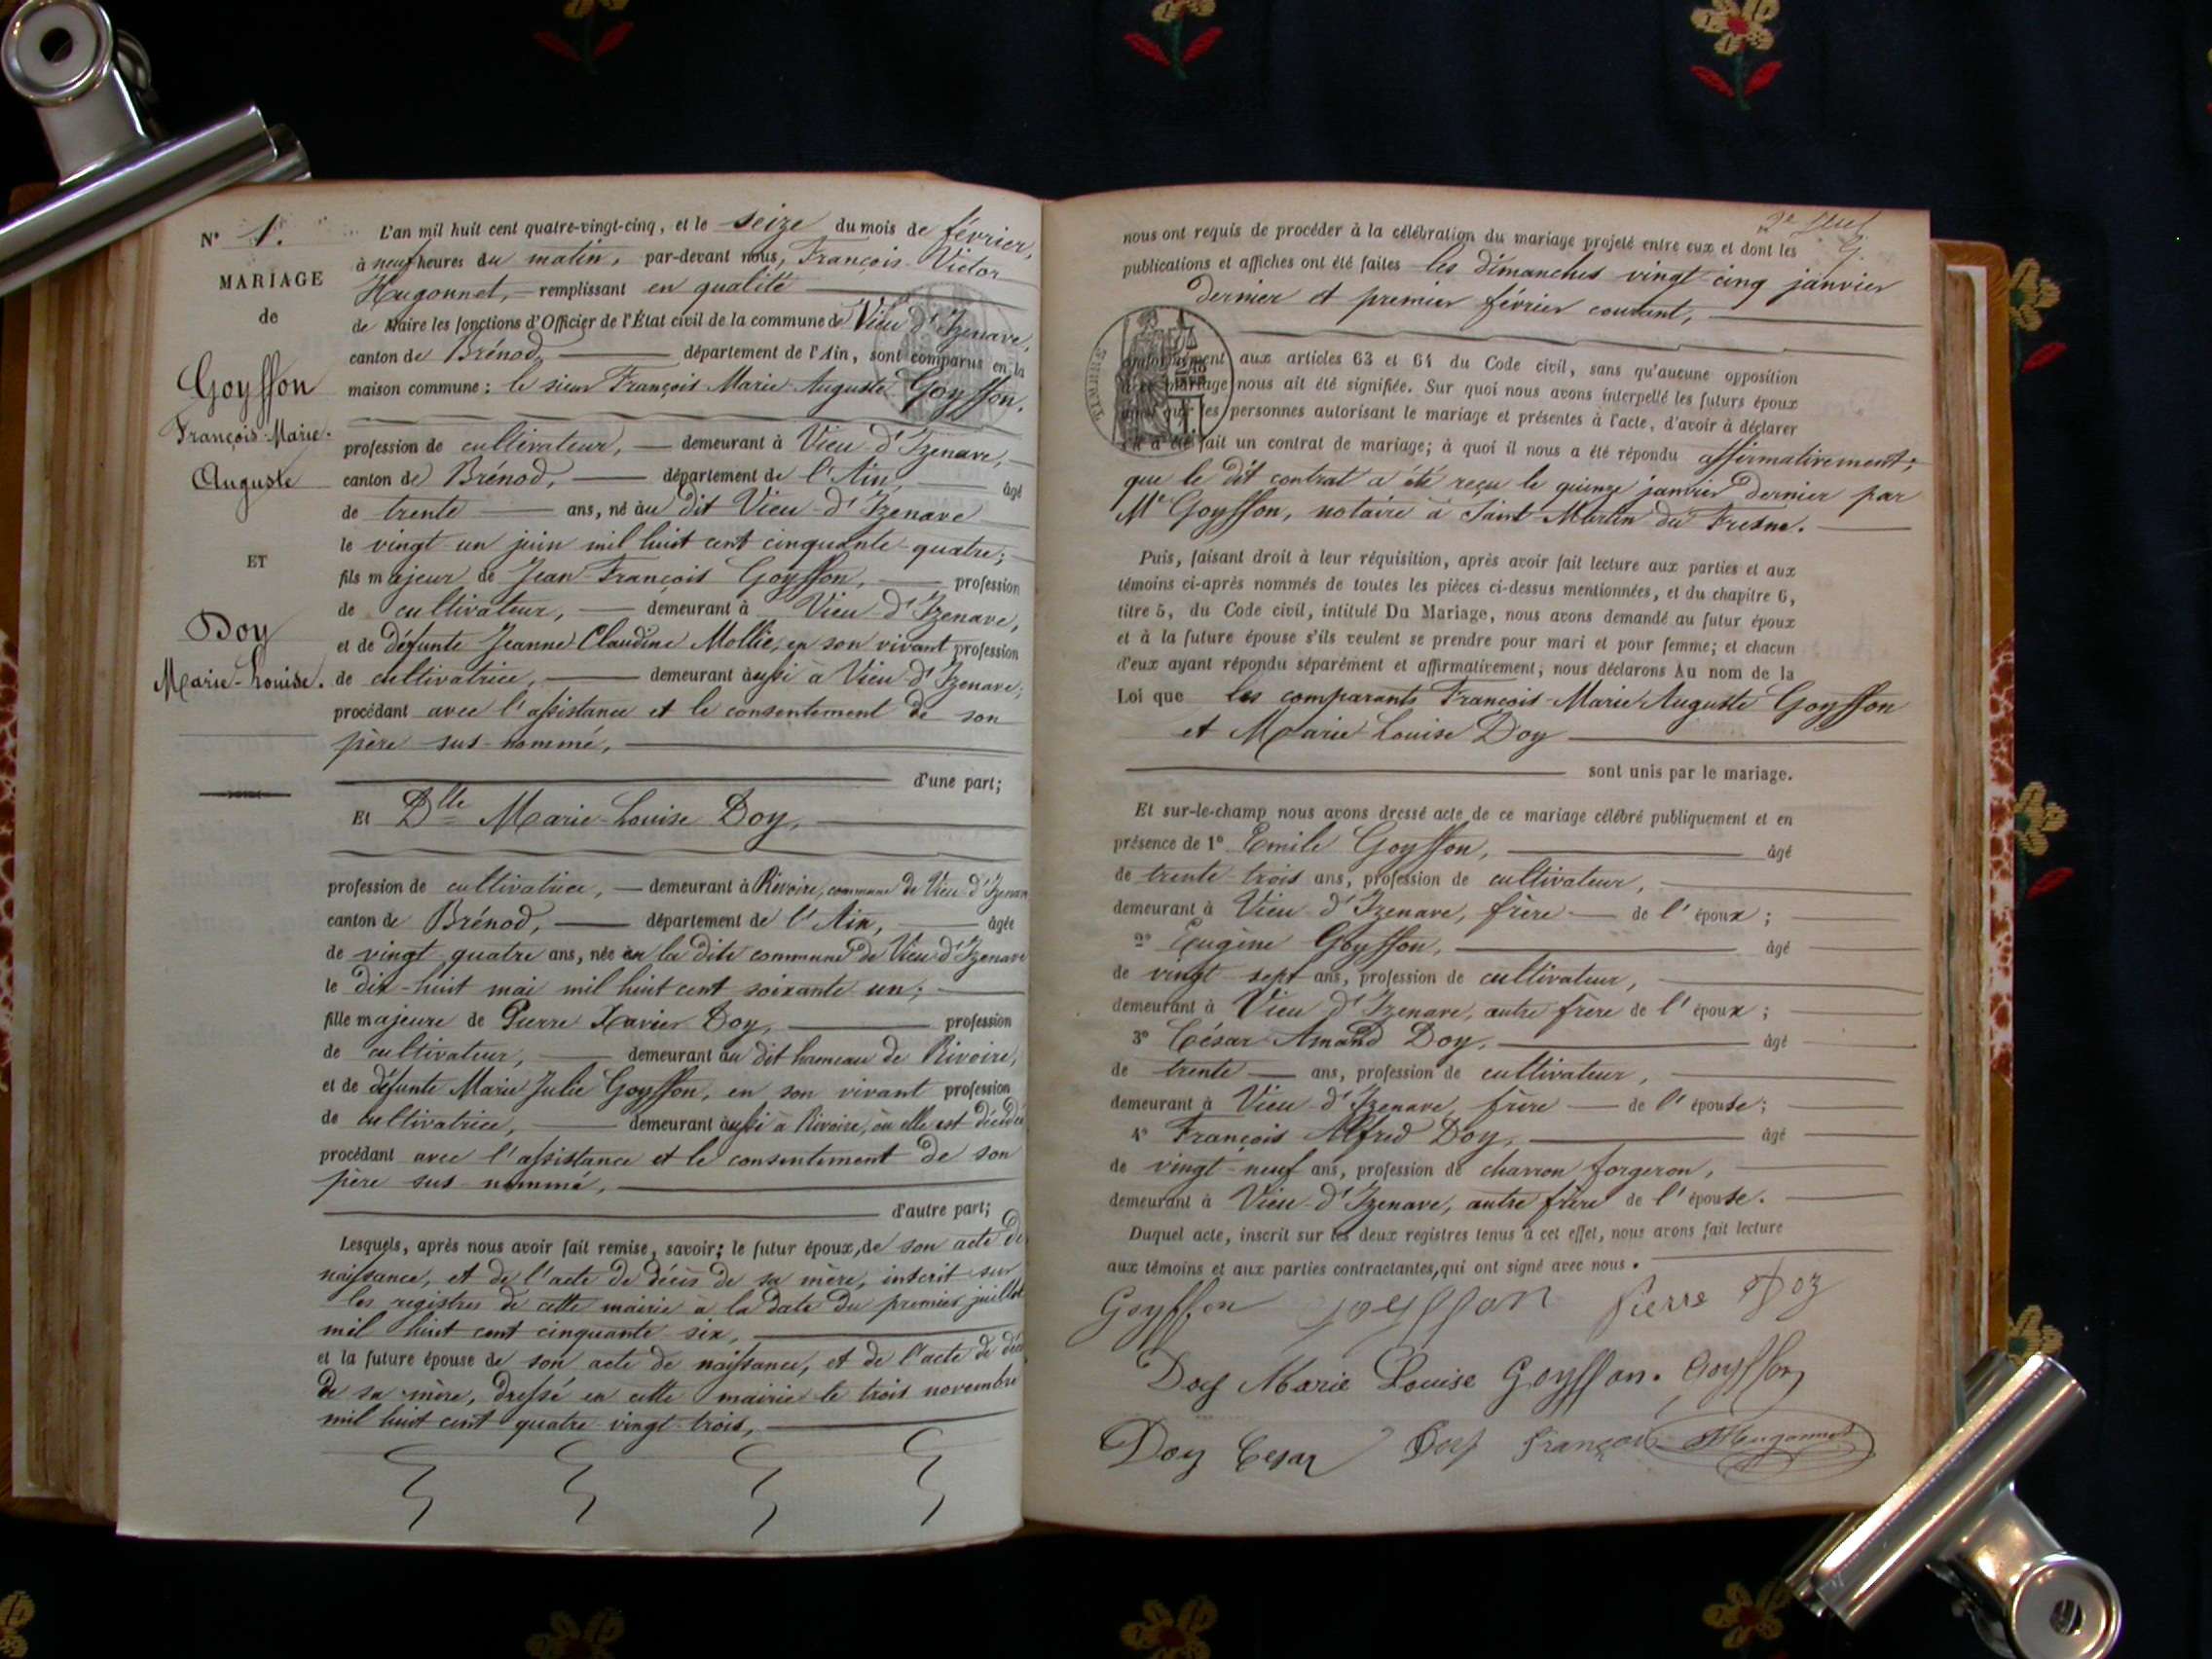 N° 1.
MARIAGE
de
Goyffon
François-Marie-
Auguste
ET
Doy
Marie-Louise.
L'an mil huit cent quatre-vingt-cinq, et le seize du mois de février,
à neuf heures du matin, par-devant nous, François-Victor
Hugonnet, remplissant en qualité
de Maire les fonctions d'Officier de l'État civil de la commune de Vieu-d'Izenave,
canton de Brénod, département de l'Ain, sont comparus en la
maison commune : le sieur François-Marie-Auguste Goyffon,
profession de cultivateur, demeurant à Vieu-d'Izenave,
canton de Brénod, département de l'Ain, âgé
de trente ans, né au dit Vieu-d'Izenave
le vingt-un juin mil huit cent cinquante-quatre;
fils majeur de Jean-François Goyffon, profession
de cultivateur, demeurant à Vieu-d'Izenave,
et de défunte Jeanne Claudine Mollie, en son vivant profession
de cultivatrice, demeurant aussi à Vieu-d'Izenave;
procédant avec l'assistance et le consentement de son
père sus-nommé,
d'une part;
Et Dlle Marie-Louise Doy,
profession de cultivatrice, demeurant à Rivoire, commune de Vieu-d'Izenave
canton de Brénod, département de l'Ain, âgée
de vingt-quatre ans, née en la dite commune de Vieu-d'Izenave
le dix-huit mai mil huit cent soixante-un;
fille majeure de Pierre Xavier Doy, profession
de cultivateur, demeurant au dit hameau de Rivoire,
et de défunte Marie Julie Goyffon, en son vivant profession
de cultivatrice, demeurant aussi à Rivoire, où elle est décédée
procédant avec l'assistance et le consentement de son
père sus-nommé,
d'autre part;
Lesquels, après nous avoir fait remise, savoir; le futur époux, de son acte de
naissance, et de l'acte de décès de sa mère, inscrit sur
les registres de cette mairie à la date du premier juillet
mil huit cent cinquante-six,
et la future épouse de son acte de naissance, et de l'acte de décès
de sa mère, dressé en cette mairie le trois novembre
mil huit cent quatre-vingt-trois,
nous ont requis de procéder à la célébration du mariage projeté entre eux et dont les
publications et affiches ont été faites les dimanches vingt-cinq janvier
dernier et premier février courant,
TIMBRE
conformément aux articles 63 et 64 du Code civil, sans qu'aucune opposition
mariage nous ait été signifiée. Sur quoi nous avons interpellé les futurs époux
que les personnes autorisant le mariage et présentes à l'acte, d'avoir à déclarer
s'il a été fait un contrat de mariage; à quoi il nous a été répondu affirmativement;
que le dit contrat a été reçu le quinze janvier dernier par
Me Goyffon, notaire à Saint-Martin-du-Fresne.
Puis, faisant droit à leur réquisition, après avoir fait lecture aux parties et aux
témoins ci-après nommés de toutes les pièces ci-dessus mentionnées, et du chapitre 6,
titre 5, du Code civil, intitulé Du Mariage, nous avons demandé au futur époux
et à la future épouse s'ils veulent se prendre pour mari et pour femme; et chacun
d'eux ayant répondu séparément et affirmativement, nous déclarons Au nom de la
Loi que les comparants François-Marie-Auguste Goyffon
et Marie Louise Doy
sont unis par le mariage.
Et sur-le-champ nous avons dressé acte de ce mariage célébré publiquement et en
présence de 1° Emile Goyffon, âgé
de trente-trois ans, profession de cultivateur,
demeurant à Vieu-d'Izenave, frère de l'époux;
2° Eugène Goyffon, âgé
de vingt-sept ans, profession de cultivateur,
demeurant à Vieu-d'Izenave, autre frère de l'époux;
3° César Amand Doy, âgé
de trente ans, profession de cultivateur,
demeurant à Vieu-d'Izenave, frère de l'épouse;
4° François Alfred Doy, âgé
de vingt-neuf ans, profession de charron forgeron,
demeurant à Vieu-d'Izenave, autre frère de l'épouse.
Duquel acte, inscrit sur les deux registres tenus à cet effet, nous avons fait lecture
aux témoins et aux parties contractantes, qui ont signé avec nous.
Goyffon goyffon Pierre Doy
Doy Marie Louise Goyffon. Goyffon
Doy Cesar Doy François Hugonnet